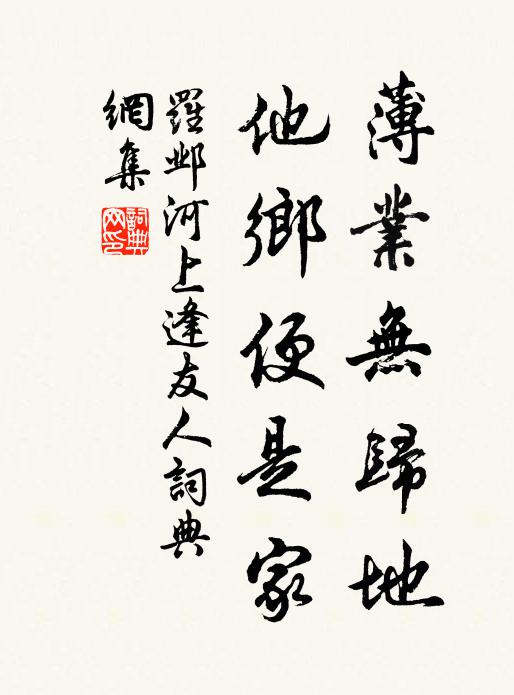 薄業無歸地
他鄉便是家
羅鄴河上逢友人詞典
網集
詞典網印